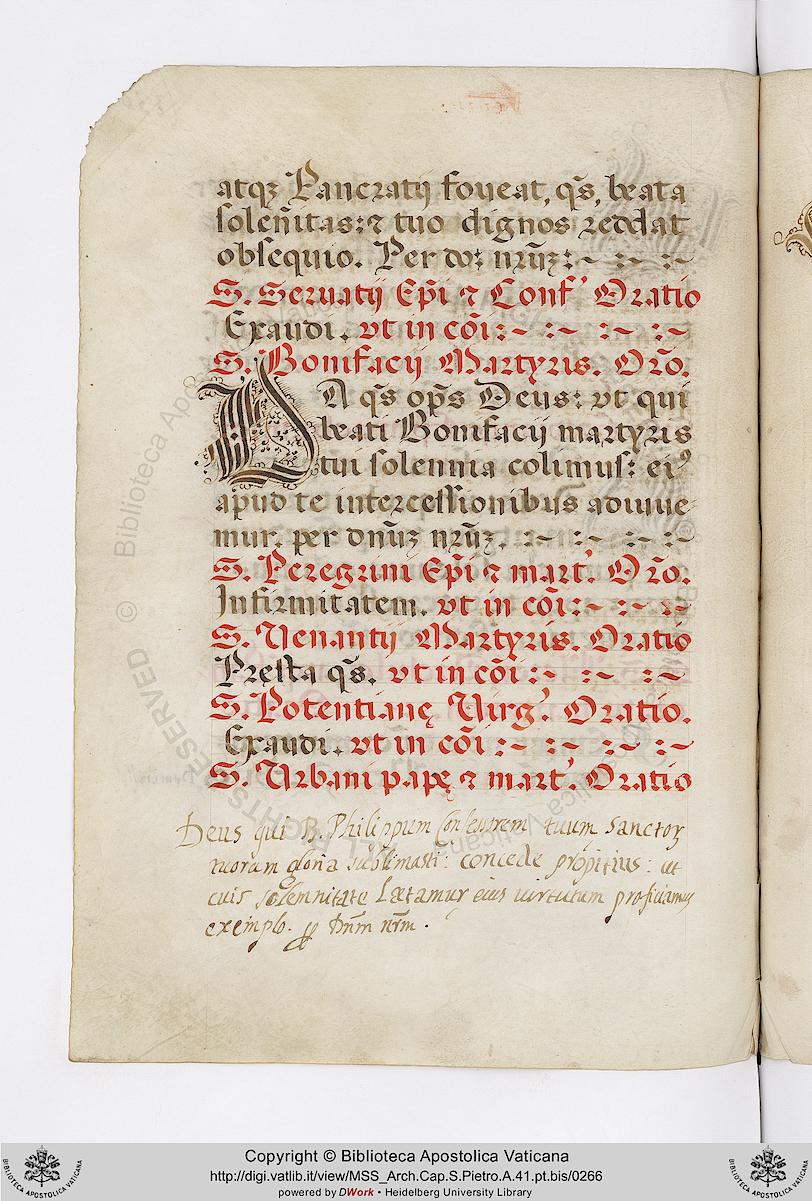 atqꝫ Pancratij foveat, q̃s, beata
solen̄itas: ⁊ tuo dignos reddat
obsequio. Per doꝫ nr̄uꝫ:~ :~ :~
S. Servatij Ep̄i ⁊ Conf' Oratio
Exaudi. vt in cōi:~ :~ :~ :~
S. Bonifacij Martyris. Or̄o.
DA q̃s op̄s Deus: vt qui
beati Bonifacij martyris
tui solennia colimus: eiꝰ
apud te intercessionibus adiuve-
mur. per dn̄uꝫ nr̄uꝫ. :~ :~ :~
S. Peregrini Ep̄i ⁊ mart'. Or̄o.
Infirmitatem. vt in cōi:~ :~ :~
S. Venantij Martyris. Oratio
Pręsta q̃s. vt in cōi:~ :~ :~
S. Potentianę Virg'. Oratio.
Exaudi. vt in cōi :~ :~ :~ :~
S. Urbani papę ⁊ mart'. Oratio
Deus qui B. Philippum Confeßorem tuum Sanctoꝝ
tuorum gloria sublimasti: concede propitius: ut
cuis solemnitate Lætamur eius virtutum proficiamus
exemplo. ꝑ Dn̄m nr̄m.
© Biblioteca Apostolica Vaticana
ALL RIGHTS RESERVED
Copyright © Biblioteca Apostolica Vaticana
http://digi.vatlib.it/view/MSS_Arch.Cap.S.Pietro.A.41.pt.bis/0266
powered by DWork • Heidelberg University Library
BIBLIOTECA APOSTOLICA VATICANA
BIBLIOTECA APOSTOLICA VATICANA